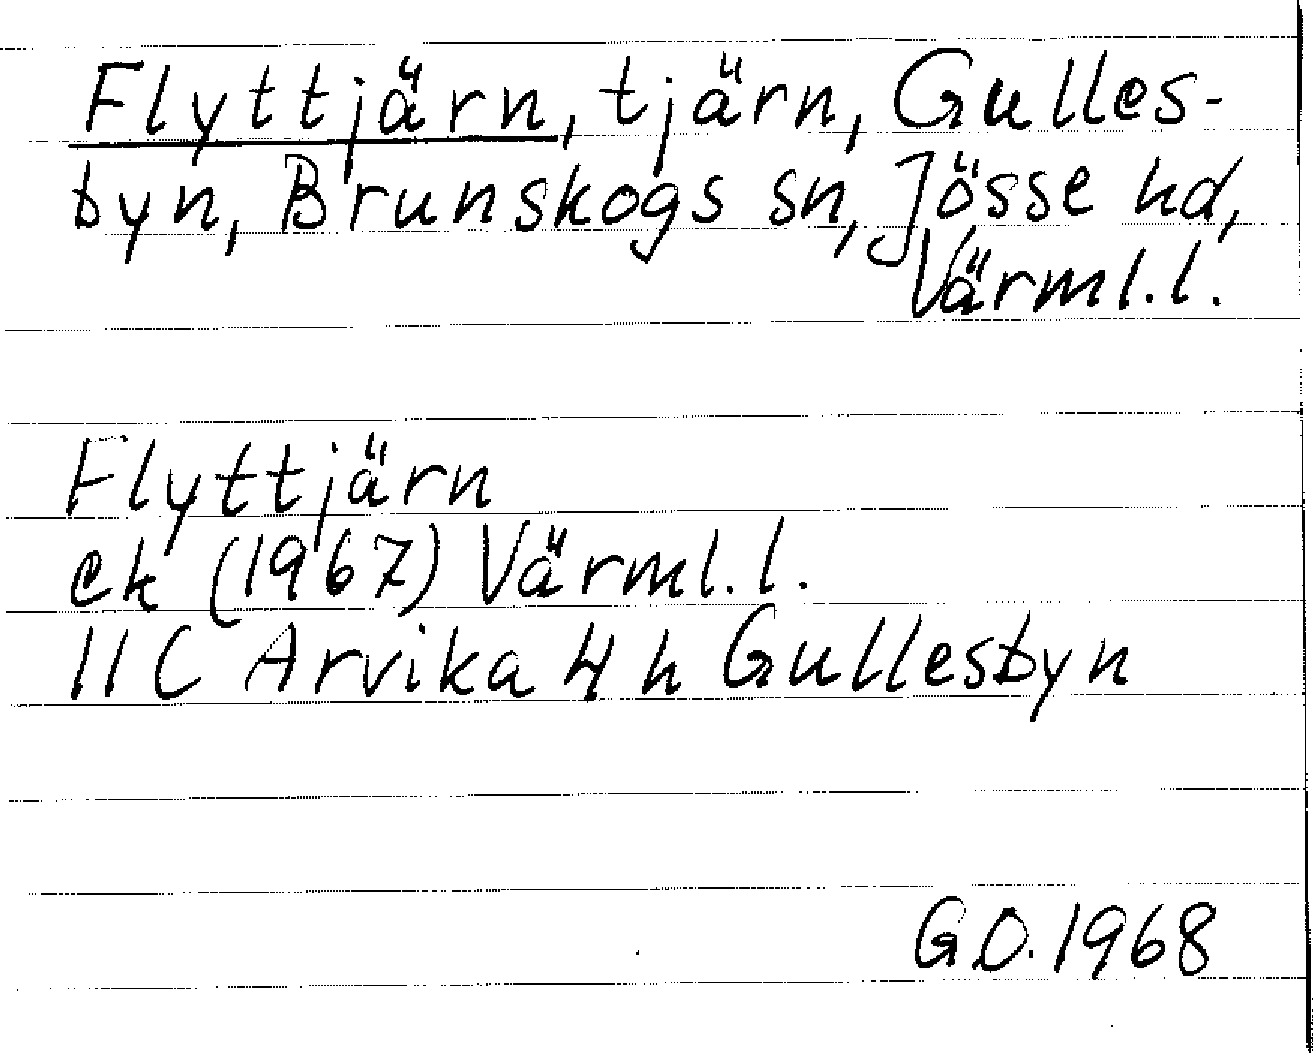 Flyttjärn, tjärn, Gulles-
byn, Brunskogs sn, Jösse hd,
Värml.l.
Flyttjärn
ek (1967) Värml.l.
11C Arvika 4h Gullesbyn
G.O. 1968